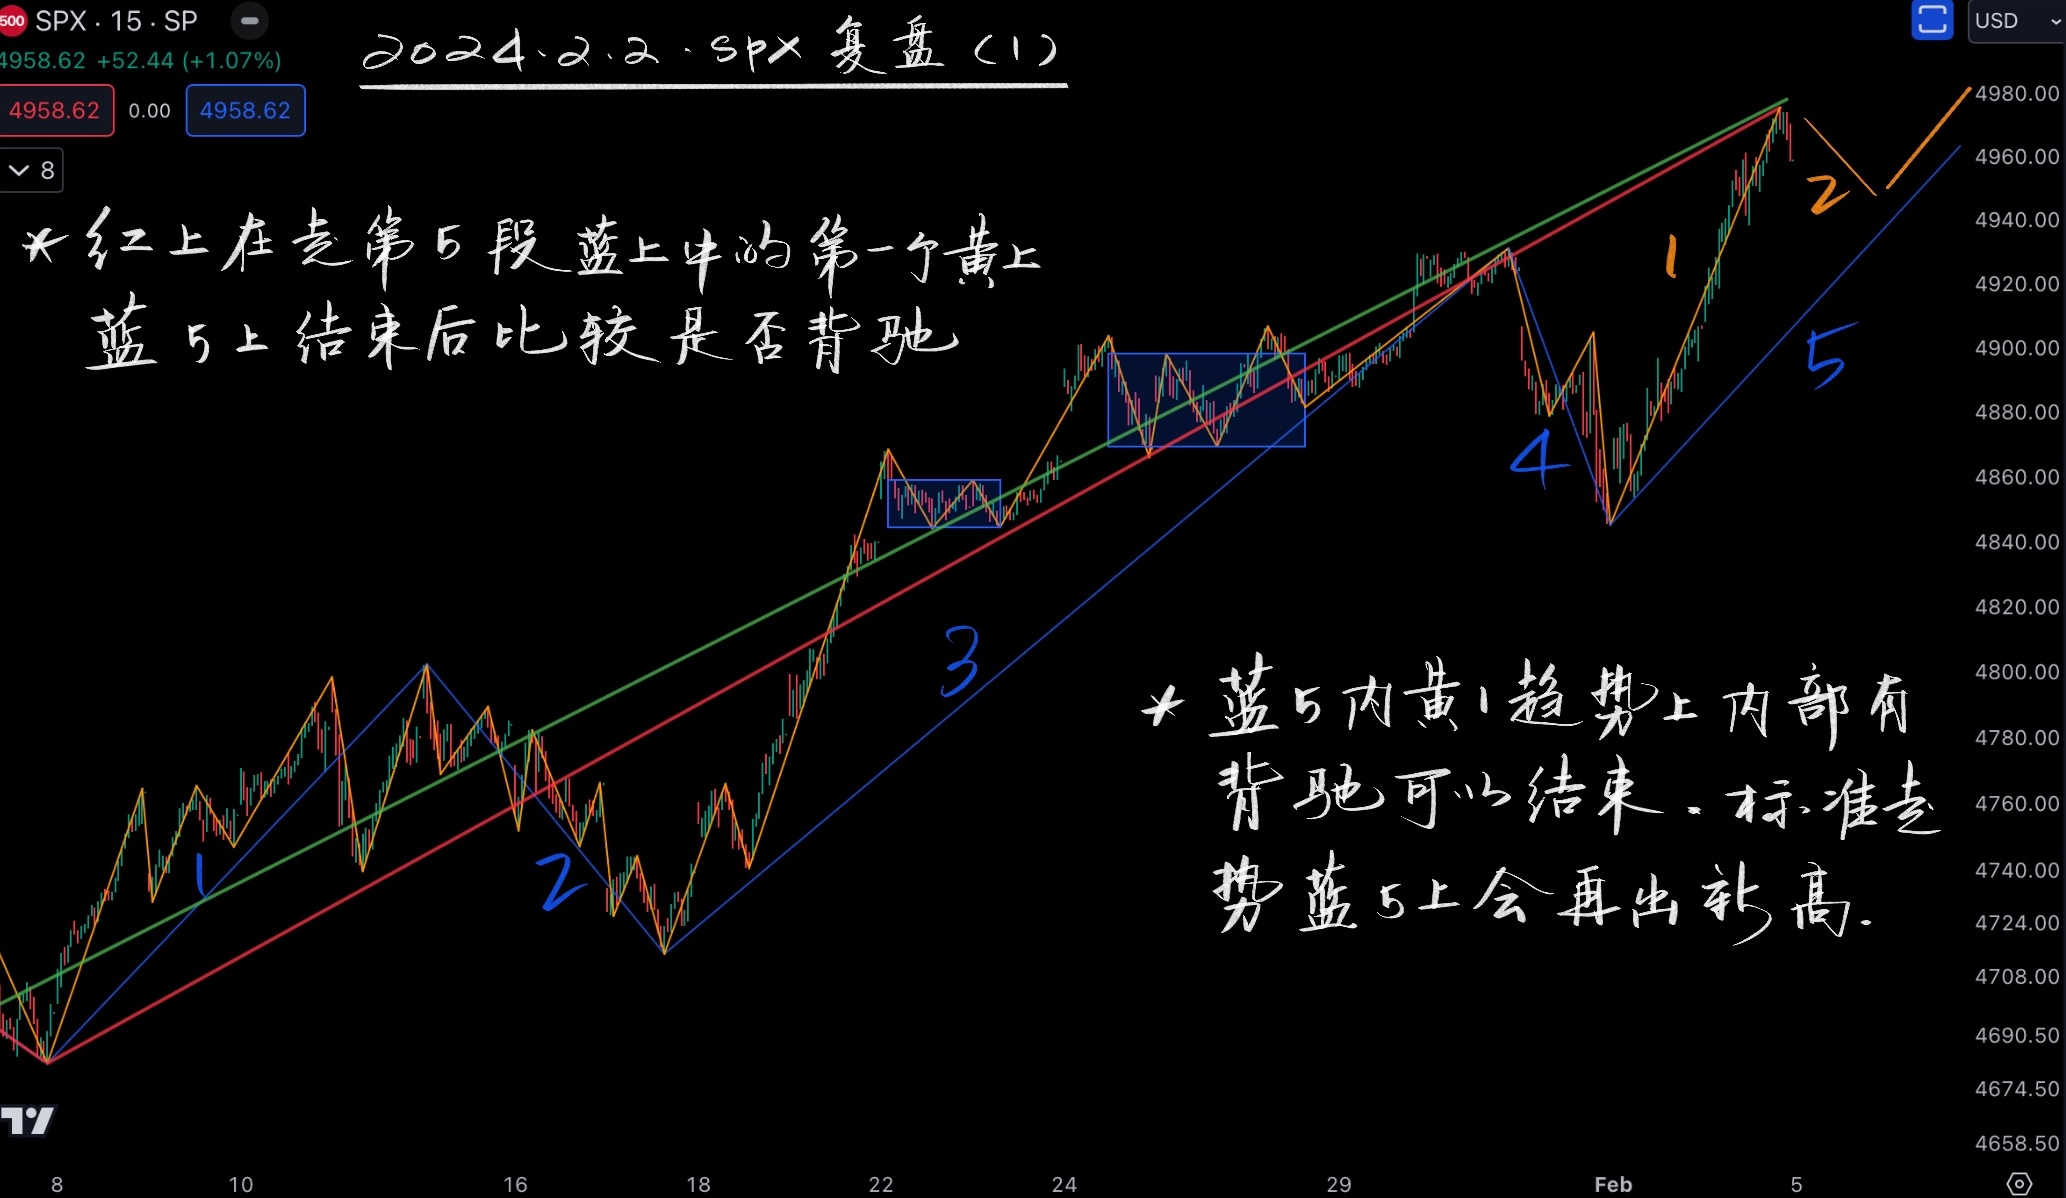 500 SPX · 15 · SP
4958.62 +52.44 (+1.07%)
4958.62 0.00 4958.62
8
2024.2.2.spx 复盘 (1)
USD
* 红上在走第5段蓝上中的第一个黄上
蓝5上结束后比较是否背驰
1
2
3
4
5
1
2
* 蓝5内黄1趋势上内部有
背驰可以结束.标准走
势蓝5上会再出新高.
4980.00
4960.00
4940.00
4920.00
4900.00
4880.00
4860.00
4840.00
4820.00
4800.00
4780.00
4760.00
4740.00
4724.00
4708.00
4690.50
4674.50
4658.50
8 10 16 18 22 24 29 Feb 5